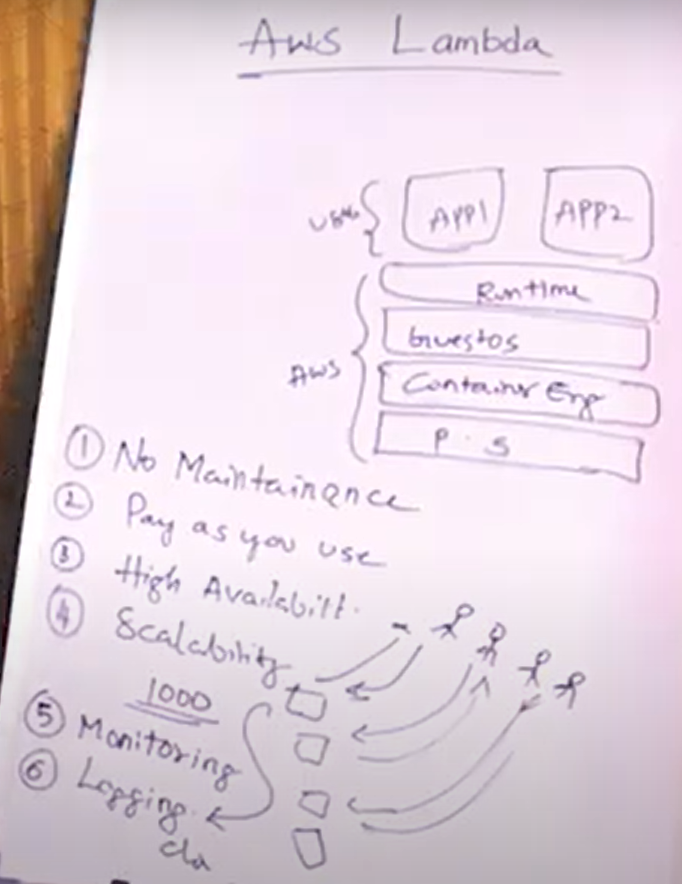 AWS Lambda
APP1 APP2
Runtime
Guestos
AWS
Container Eng
P. S
① No Maintainence
② Pay as you use
③ High Availabilt.
④ Scalability
1000
⑤ Monitoring
⑥ Logging.